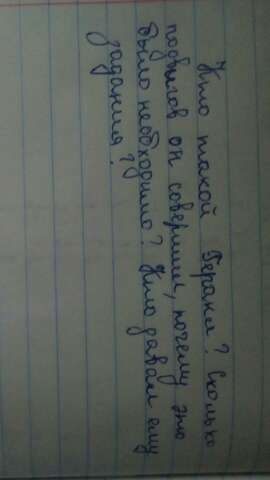 Кто такой Геракл? Сколько
подвигов он совершил, почему это
было необходимо? Кто давал ему
задания?